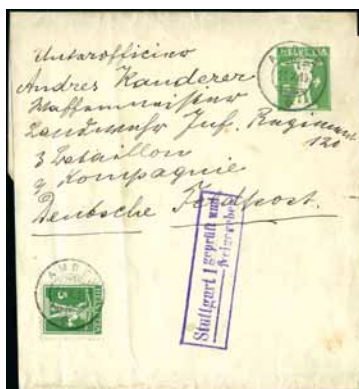 HELVETIA
Unterofficier
Andres Kanderer
Waffenmeister
Landwehr Inf. Regiment
120
3 Bataillon
9 Kompagnie
Deutsche Feldpost.
Stuttgart 1 geprüft und
freigegeben
AMRI
5
HELVETIA